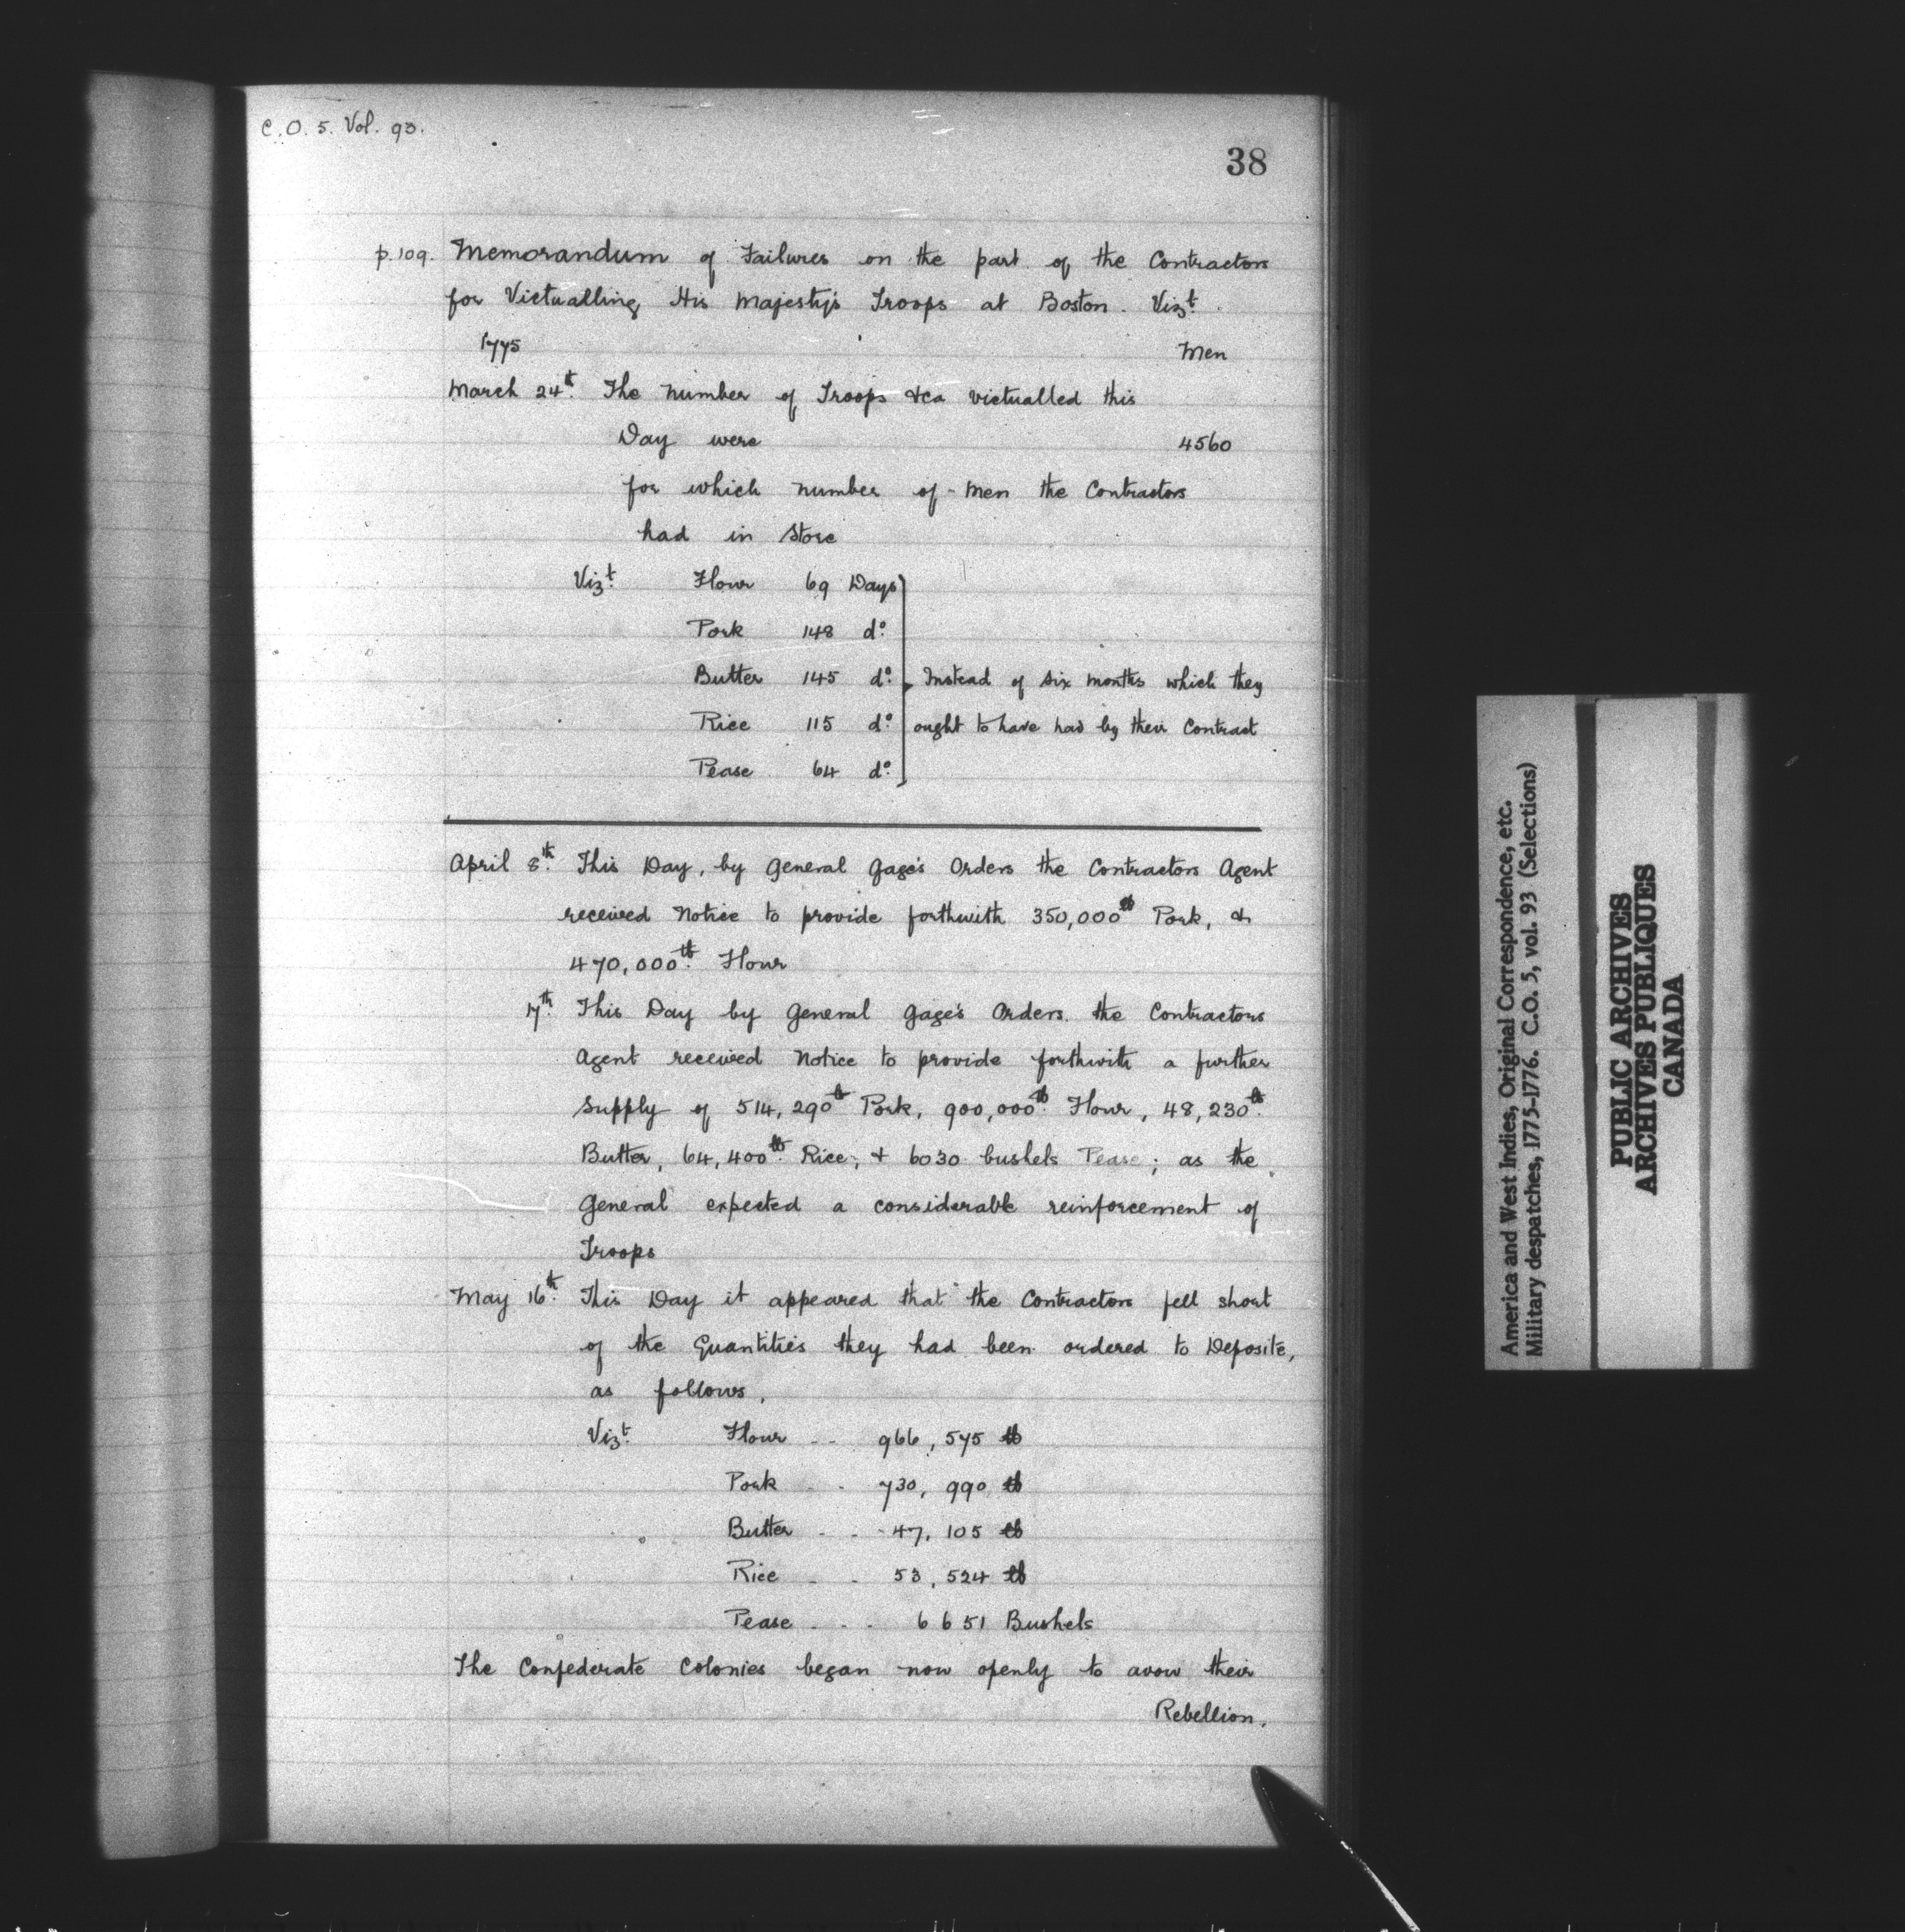 C.O. 5. Vol. 93.
38
p.109. Memorandum of Failures on the part of the Contractors
for Victualling His Majesty's Troops at Boston. Vizt.
1775 Men
March 24th. The Number of Troops &ca victualled this
Day were 4560
for which number of Men the Contractors
had in Store
Vizt. Flour 69 Days
Pork 148 do.
Butter 145 do. Instead of six months which they
Rice 115 do. ought to have had by their Contract
Pease 64 do.
April 8th. This Day, by General Gage's Orders the Contractors Agent
received Notice to provide forthwith 350,000lb Pork, &
470,000lb. Flour
17th. This Day by General Gage's Orders the Contractors
Agent received Notice to provide forthwith a further
Supply of 514,290lb Pork, 900,000lb. Flour, 48,230lb.
Butter, 64,400lb. Rice, & 6030 bushels Pease; as the
General expected a considerable reinforcement of
Troops
May 16th. This Day it appeared that the Contractors fell short
of the Quantities they had been ordered to Deposite,
as follows,
Vizt. Flour -- 966,575 lb
Pork - - 730,990 lb
Butter - - - 47,105 lb
Rice - - 53,524 lb
Pease - - - 6651 Bushels
The Confederate Colonies began now openly to avow their
Rebellion.
America and West Indies, Original Correspondence, etc.
Military despatches, 1775-1776. C.O. 5, vol. 93 (Selections)
PUBLIC ARCHIVES
ARCHIVES PUBLIQUES
CANADA